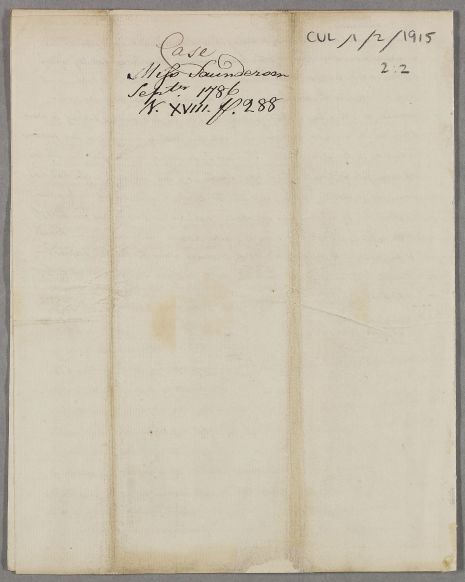 Case
Miss Saunderson
Septr. 1786
V. XVIII. p. 288
CUL/1/2/1915
2:2